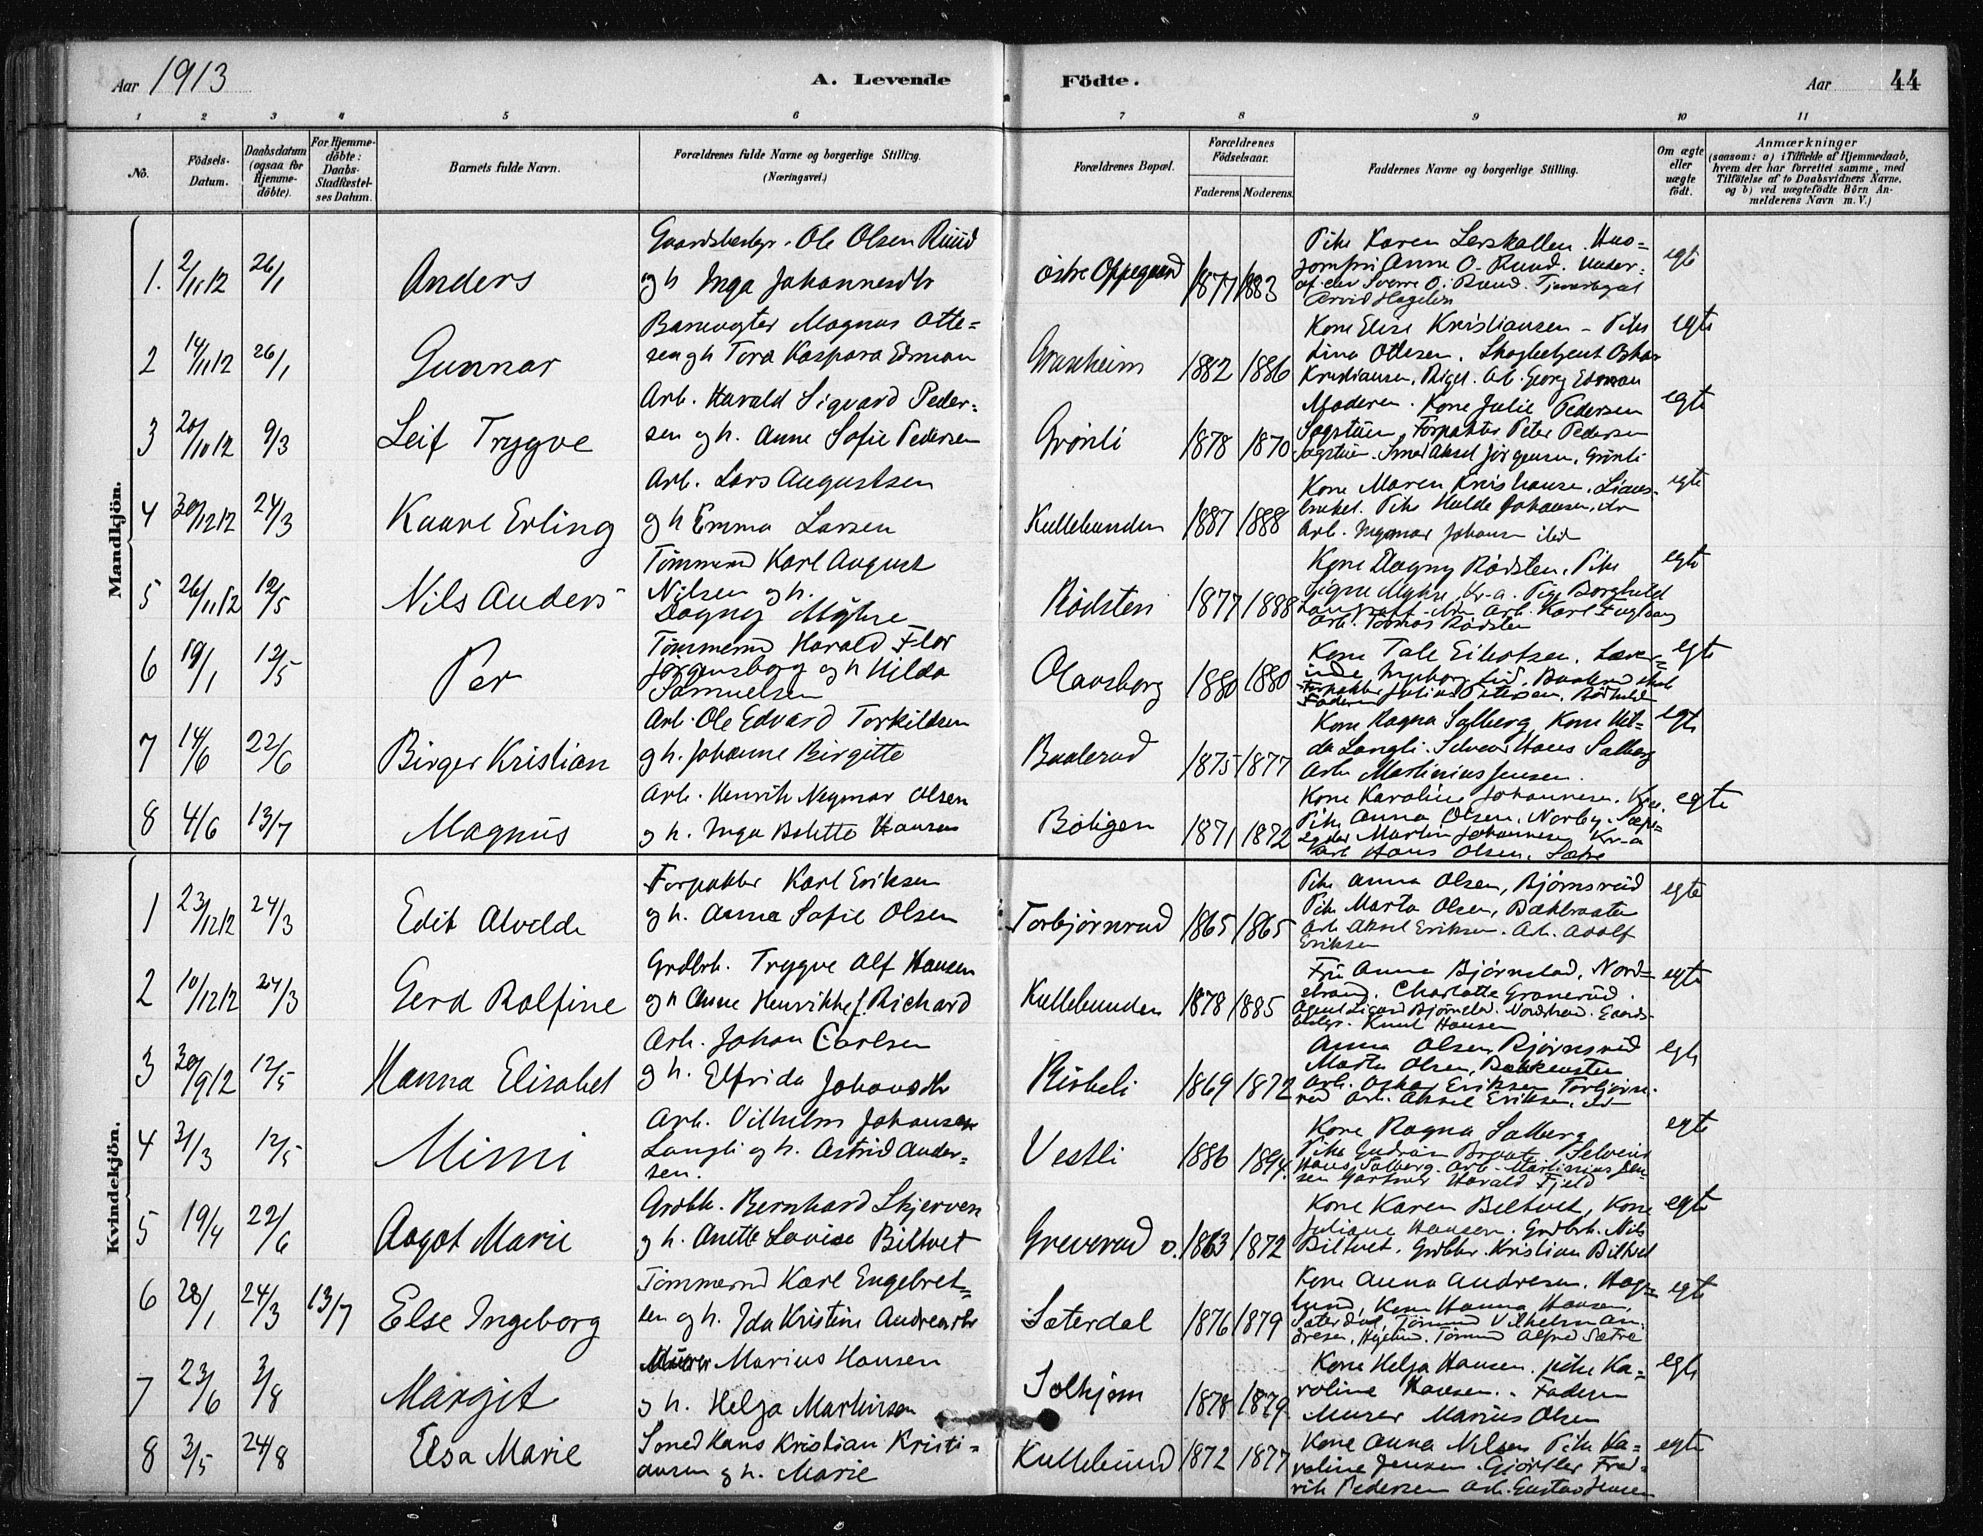 Aar 1913 A. Levende Födte. Aar 44
1 2 3 4 5 6 7 8 9 10 11
No. Födsels-Datum. Daabsdatum (ogsaa for Hjemme-döbte). For Hjemme-döbte: Daabs-Stadfæstel-ses Datum. Barnets fulde Navn. Forældrenes fulde Navne og borgerlige Stilling. (Næringsvei.) Forældrenes Bopæl. Forældrenes Födselsaar. Faderens Moderens Faddernes Navne og borgerlige Stilling. Om ægte eller uægte födt. Anmærkninger (saasom: a) i Tilfælde af Hjemmedaab, hvem der har forrettet samme, med Tilföielse af to Daabsvidners Navne, og b) ved uægtefödte Börn An-melderens Navn m. V.)
Mandkjön.
1. 2/11 12 26/1 Anders
Gaardsbestyr. Ole Olsen Ruud
og h Inga Johannesdtr
østre Oppegaard 1877 1883
Pike Karen Lerskallen. Hus-
jomfru Anne O. Ruud. Under-
of. elev Sverre O. Ruud.
Arvid Hagelin
egte
2 14/11 12 26/1 Gunnar
Banevogter Magnus Otte-
sen g h Tora Kaspara Edman
Granheim 1882 1886
Kone Elise Kristiansen - Pike
Lina Ottesen. Skogbetjent Oskar
Kristiansen, Arb. Georg Edman
egte
3 20/10 12 9/3 Leif Trygve
Arb. Harald Sigvard Peder-
sen og h. Anne Sofie Pedersen
Grønli 1878 1870
Moderen. Kone Julie Pedersen
Sagstuen, Forpakter Peter Pedersen
Sagstuen. Smed Aksel Jørgensen, Grønli
egte
4 30/12 12 24/3 Kaare Erling
Arb. Lars Augustsen
og h Emma Larsen
Kullebunden 1887 1888
Kone Maren Kristiansen, Lians-
bruket. Pike Hulda Johansen,
Arb. Ingmar Johansen ibid
egte
5 26/11 12 12/5 Nils Anders
Tømmermd Karl August
Nilsen og h.
Dagny Myhre
Rødsten 1877 1888
Kone Dagny Rødsten. Pike
Signe Myhre, Kr-a. Pige Borghild
Arb. Karl Fuglvaag
Arb. Tomas Rødsten
egte
6 19/1 12/5 Per
Tømmermd Harald Flor
Jørgensborg og h Hilda
Samuelsen
Olavsborg 1880 1880
Kone Tale Eilertsen. Lærer-
inde Ingeborg Lid,
Forpakter Julius Petersen, Rødsten
Faderen
egte
7 14/6 22/6 Birger Kristian
Arb. Ole Edvard Torkildsen
g h. Johanne Birgitte
Baalerud 1875 1877
Kone Ragna Solberg, Kone Hil-
da Langli. Selveier Hans Solberg
Arb. Martinius Jensen.
egte
8 4/6 13/7 Magnus
Arb. Henrik Negmar Olsen
og h. Inga Bolette Hansen
Boligen 1871 1872
Kone Karoline Johannesen. Kra.
Pike Anna Olsen, Norby.
Martin Johannesen Kr-a
Arb Hans Olsen, Sætre
egte
Kvindekjön.
1 23/12 12 24/3 Edit Alvilde
Forpakter Karl Eriksen
og h. Anna Sofie Olsen
Torbjørnrud 1865 1865
Pike Anna Olsen, Bjørnsrud
Pike Marta Olsen, Bakkvaten
Arb. Aksel Eriksen. Arb. Adolf
Eriksen
egte
2 10/12 12 24/3 Gerd Rolfine
Grdbrk. Trygve Alf Hansen
og h Anne Henrikke f. Richard
Kullebunden 1878 1885
Fru Anna Bjørnstad, Nord-
strand. Charlotte Granerud.
Agent Sigurd Bjørnstad. Nordstrand. Gaards-
bestyr. Knut Hansen
egte
3 30/9 12 12/5 Hanna Elisabet
Arb. Johan Carlsen
g h. Elfrida Johansdtr
Risheli 1869 1872
Anna Olsen, Bjørnsrud
Marta Olsen, Bakkevaten
Arb. Oskar Eriksen Torbjørn-
rud Arb. Aksel Eriksen,
egte
4 31/3 12/5 Mimi
Arb. Vilhelm Johansen
Langli og h. Astrid Ander-
sen.
Vestli 1886 1894.
Kone Ragna Solberg
Pike Gudrun Selveier
Hans Solberg. Arb. Martinius Jen-
sen Gartner Harald Fjeld
egte
5 19/4 22/6 Aagot Marie
Grdbk. Bernhard Skjerven
g h. Anette Lovise Biltvet
Greverud ø. 1863 1872
Kone Karen Biltvet, Kone
Juliane Hansen. Grdbrk. Nils
Biltvet. Grdbkr. Kristian Biltvet
egte
6 28/1 24/3 13/7 Else Ingeborg
Tømmermd Karl Engebret-
sen og h. Ida Kristine Andreasdtr
Sæterdal 1876 1879
Kone Anna Andresen. Hag-
lund, Kone Hanna Hansen,
Sæterdal, Tømmd Vilhelm An-
dresen, Haglund. Tømmd Alfred Sætre
egte
7 23/6 3/8 Margit
Murer Marius Hansen
g h. Helga Martinsen
Solhjem 1878 1879.
Kone Helga Hansen. pike Ka-
roline Hansen. Faderen
Murer Marius Olsen
egte
8 3/5 24/8 Elsa Marie
Smed Hans Kristian Kristi-
ansen g h. Marie
Kullebund 1872 1877
Kone Anna Nilsen Pike Ka-
roline Jensen. Gjørtler Fred-
rik Pedersen Arb. Gustav Jensen
egte